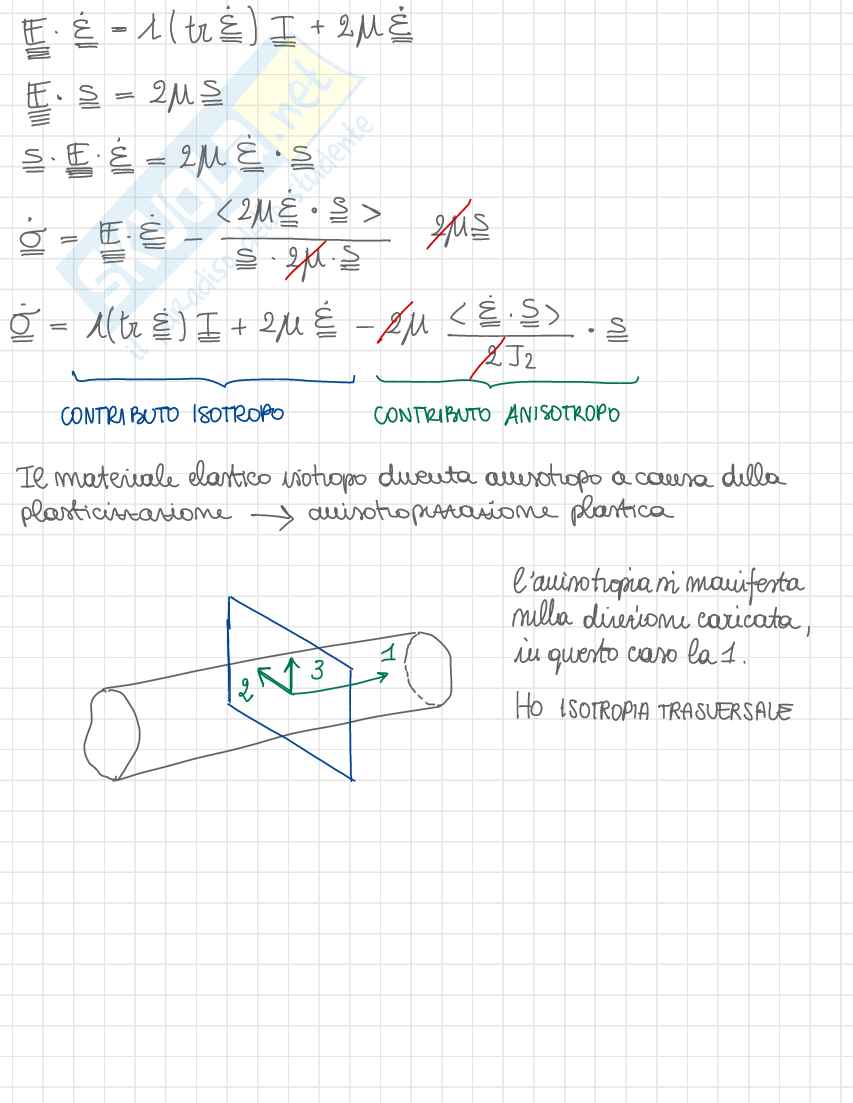 E · ε̇ = λ(tr ε̇) I + 2μ ε̇
E · s = 2μ s
s · E · ε̇ = 2μ ε̇ · s
σ̇ = E · ε̇ − <2μ ε̇ · s> / s · 2μ · s 2μ s
σ̇ = λ(tr ε̇) I + 2μ ε̇ − 2μ <ε̇ · s> / 2J₂ · s
CONTRIBUTO ISOTROPO CONTRIBUTO ANISOTROPO
Il materiale elastico isotropo diventa anisotropo a causa della
plasticizzazione → anisotropizzazione plastica
l'anisotropia si manifesta
nella direzione caricata,
in questo caso la 1.
HO ISOTROPIA TRASVERSALE
1
2
3
SKUOLA.net